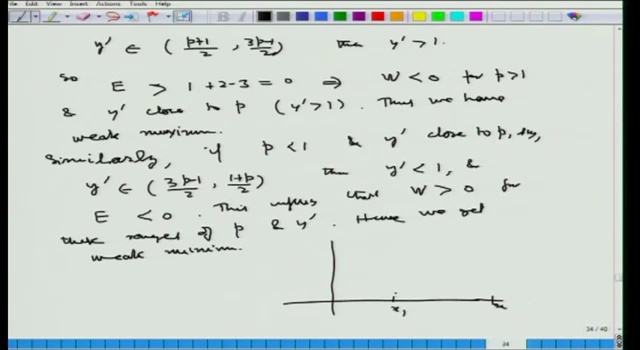 File Edit View Insert Actions Tools Help
y' ∈ ( p+1/2 , 3p-1/2 ) then y' > 1.
So E > 1 + 2 - 3 = 0 ⇒ W < 0 for p > 1
& y' close to p ( y' > 1 ). Thus we have
weak maximum.
Similarly, if p < 1 & y' close to p, say,
y' ∈ ( 3p-1/2 , 1+p/2 ) then y' < 1, &
E < 0. This implies that W > 0 for
these ranges of p & y'. Hence we get
weak minimum.
x₁
34 / 40
34